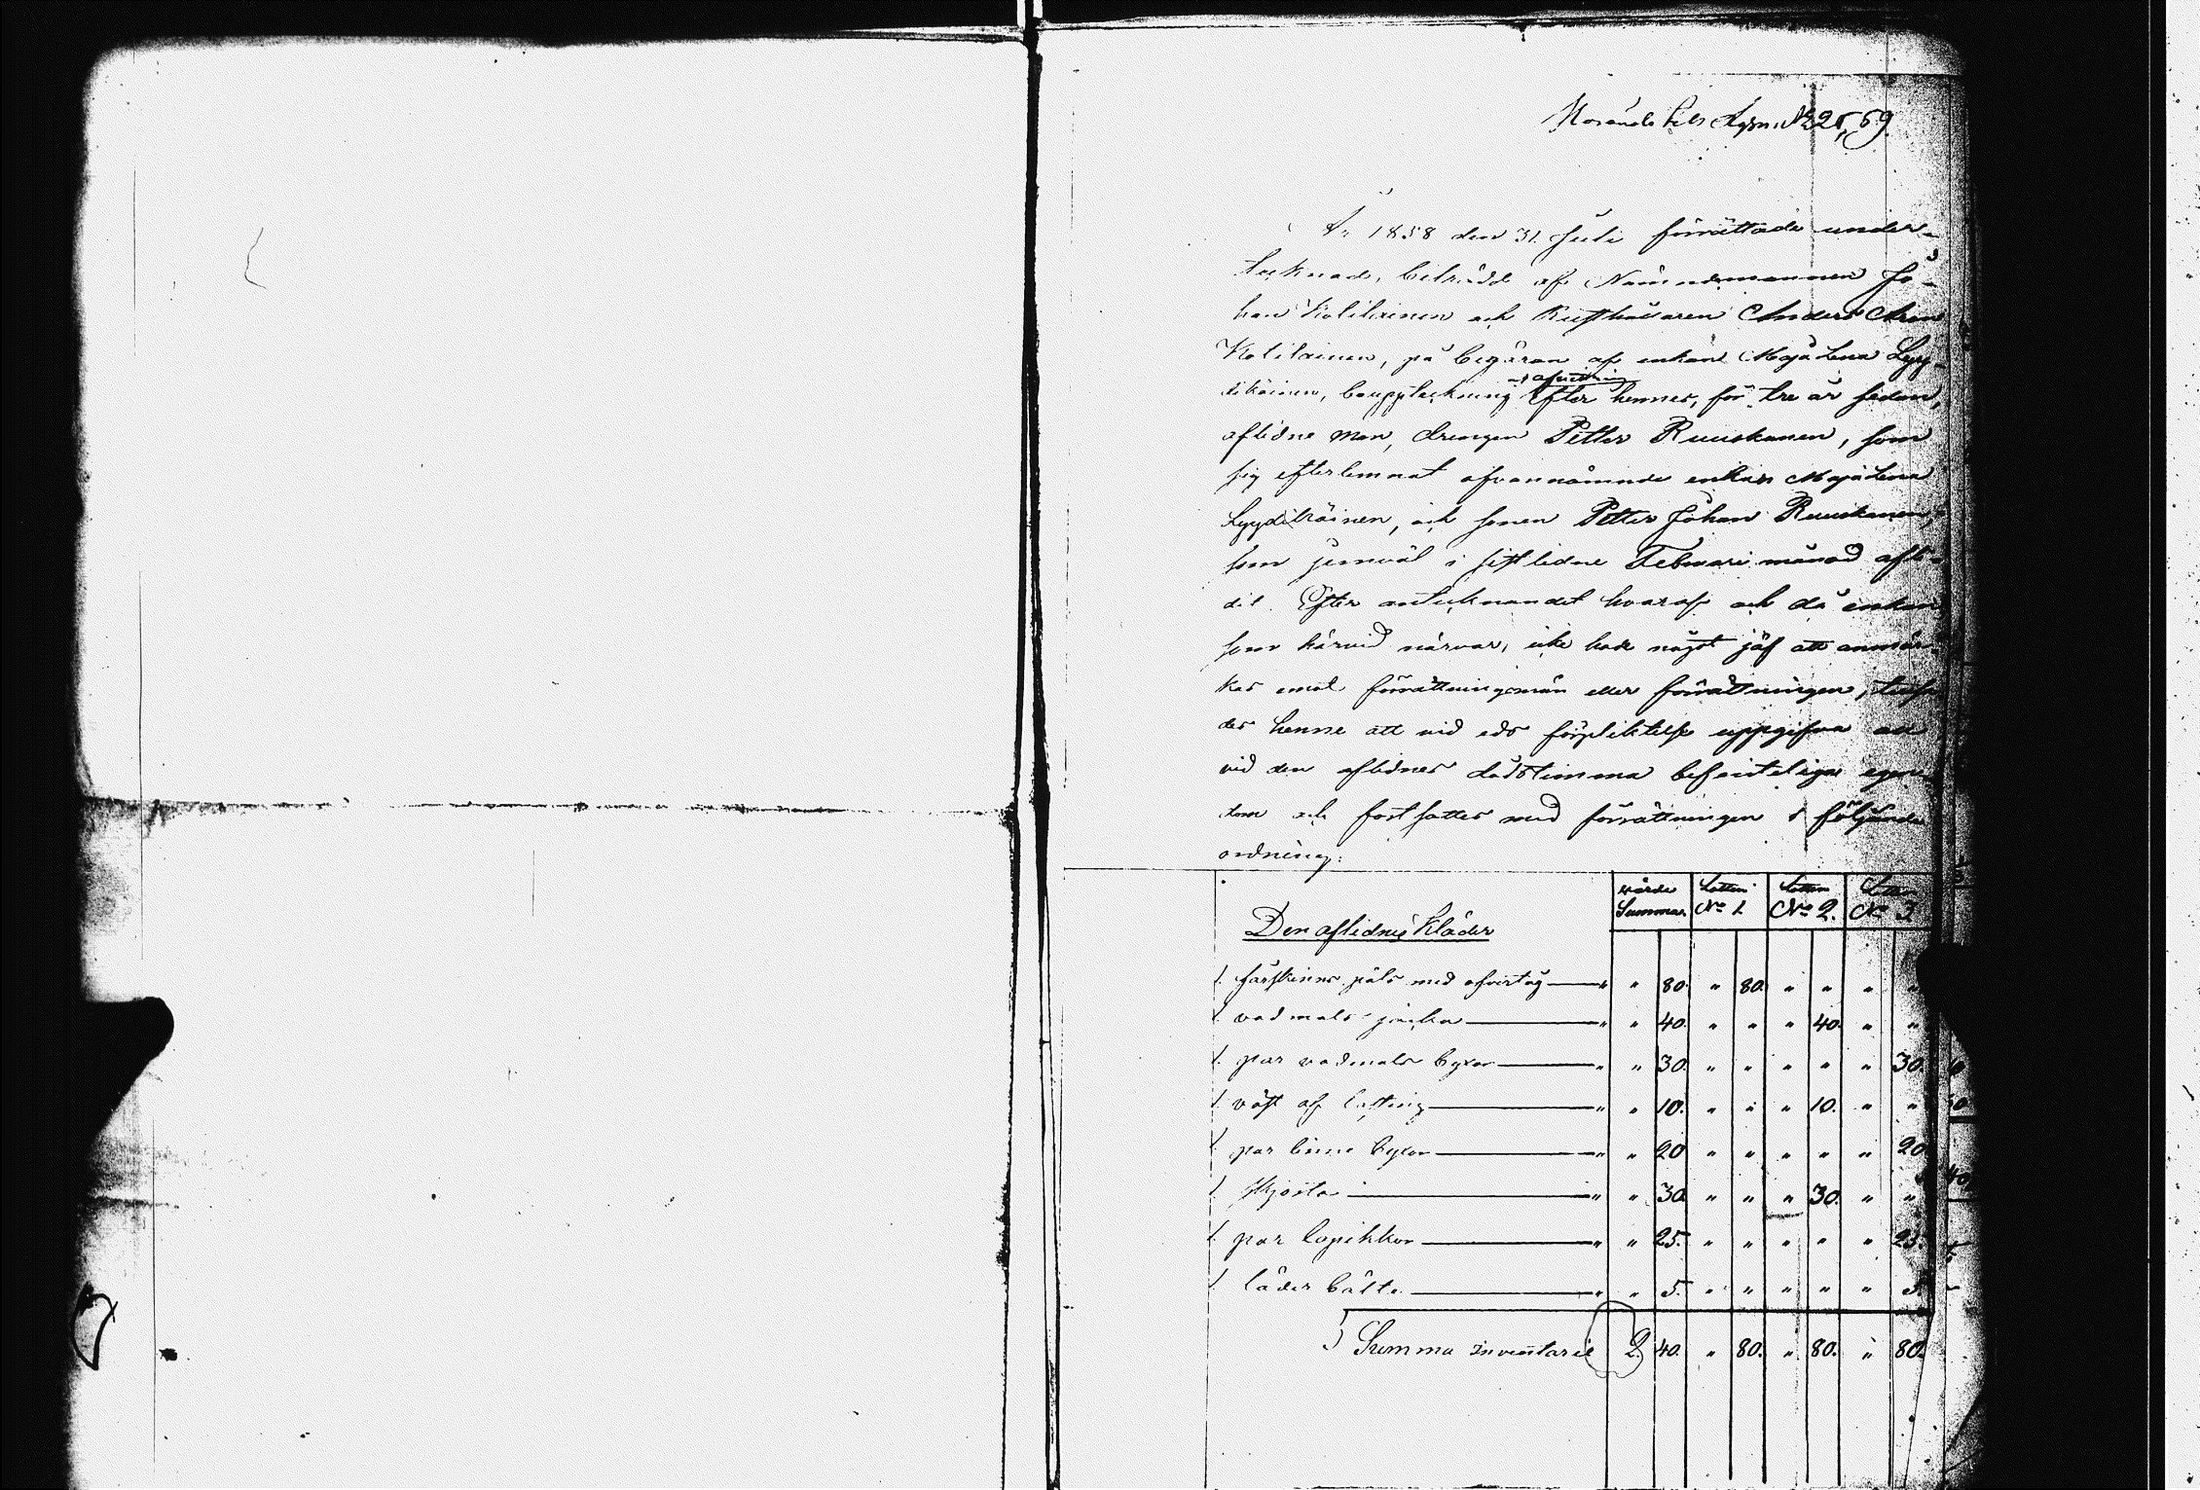 År 1858 den 31 Juli förrättade under-
tecknad, biträdd af Nämndemannen Jo-
han Kotilainen och Rusthållaren Anders Aron
Kotilainen, på begäran af enkan Maja Lena Lyy-
dikäinen, bouppteckning efter hennes, för tre år sedan,
aflidne man, drengen Petter Ruuskanen, som
sig efterlemnat ofvannämnde enkan Maja Lena
Lyydikäinen, och sonen Petter Johan Ruuskanen,
som jemväl i sistlidne Februari månad afli-
dit. Efter antecknandet hvaraf och då enkan
som härvid närvar, icke hade något jäf att anmär-
kas emot förrättningsmän eller förrättningen,
des henne att vid eds förpliktelse uppgifva all
vid den aflidnes dödstimma befinteliga egen-
dom och fortsattes med förrättningen i följande
ordning:
värde Summa. Lotten No 1. Lotten No 2. Lotten No 3.
Den aflidnes Kläder
1. fårskinns päls med öfvertåg " " 80. " 80. " " " "
1. vadmals jacka " " 40. " " " 40. " "
1. par vadmals byxor " " 30. " " " " " 30.
1. väst af lasting " " 10. " " " 10. " "
1. par linne byxor " " 20 " " " " " 20
1. Skjorta " " 30 " " " 30. " "
1. par lapikkor " " 25. " " " " " 25.
1. läder bälte " " 5. " " " " " 5.
Summa inventarie 2. 40. " 80. " 80. " 80.